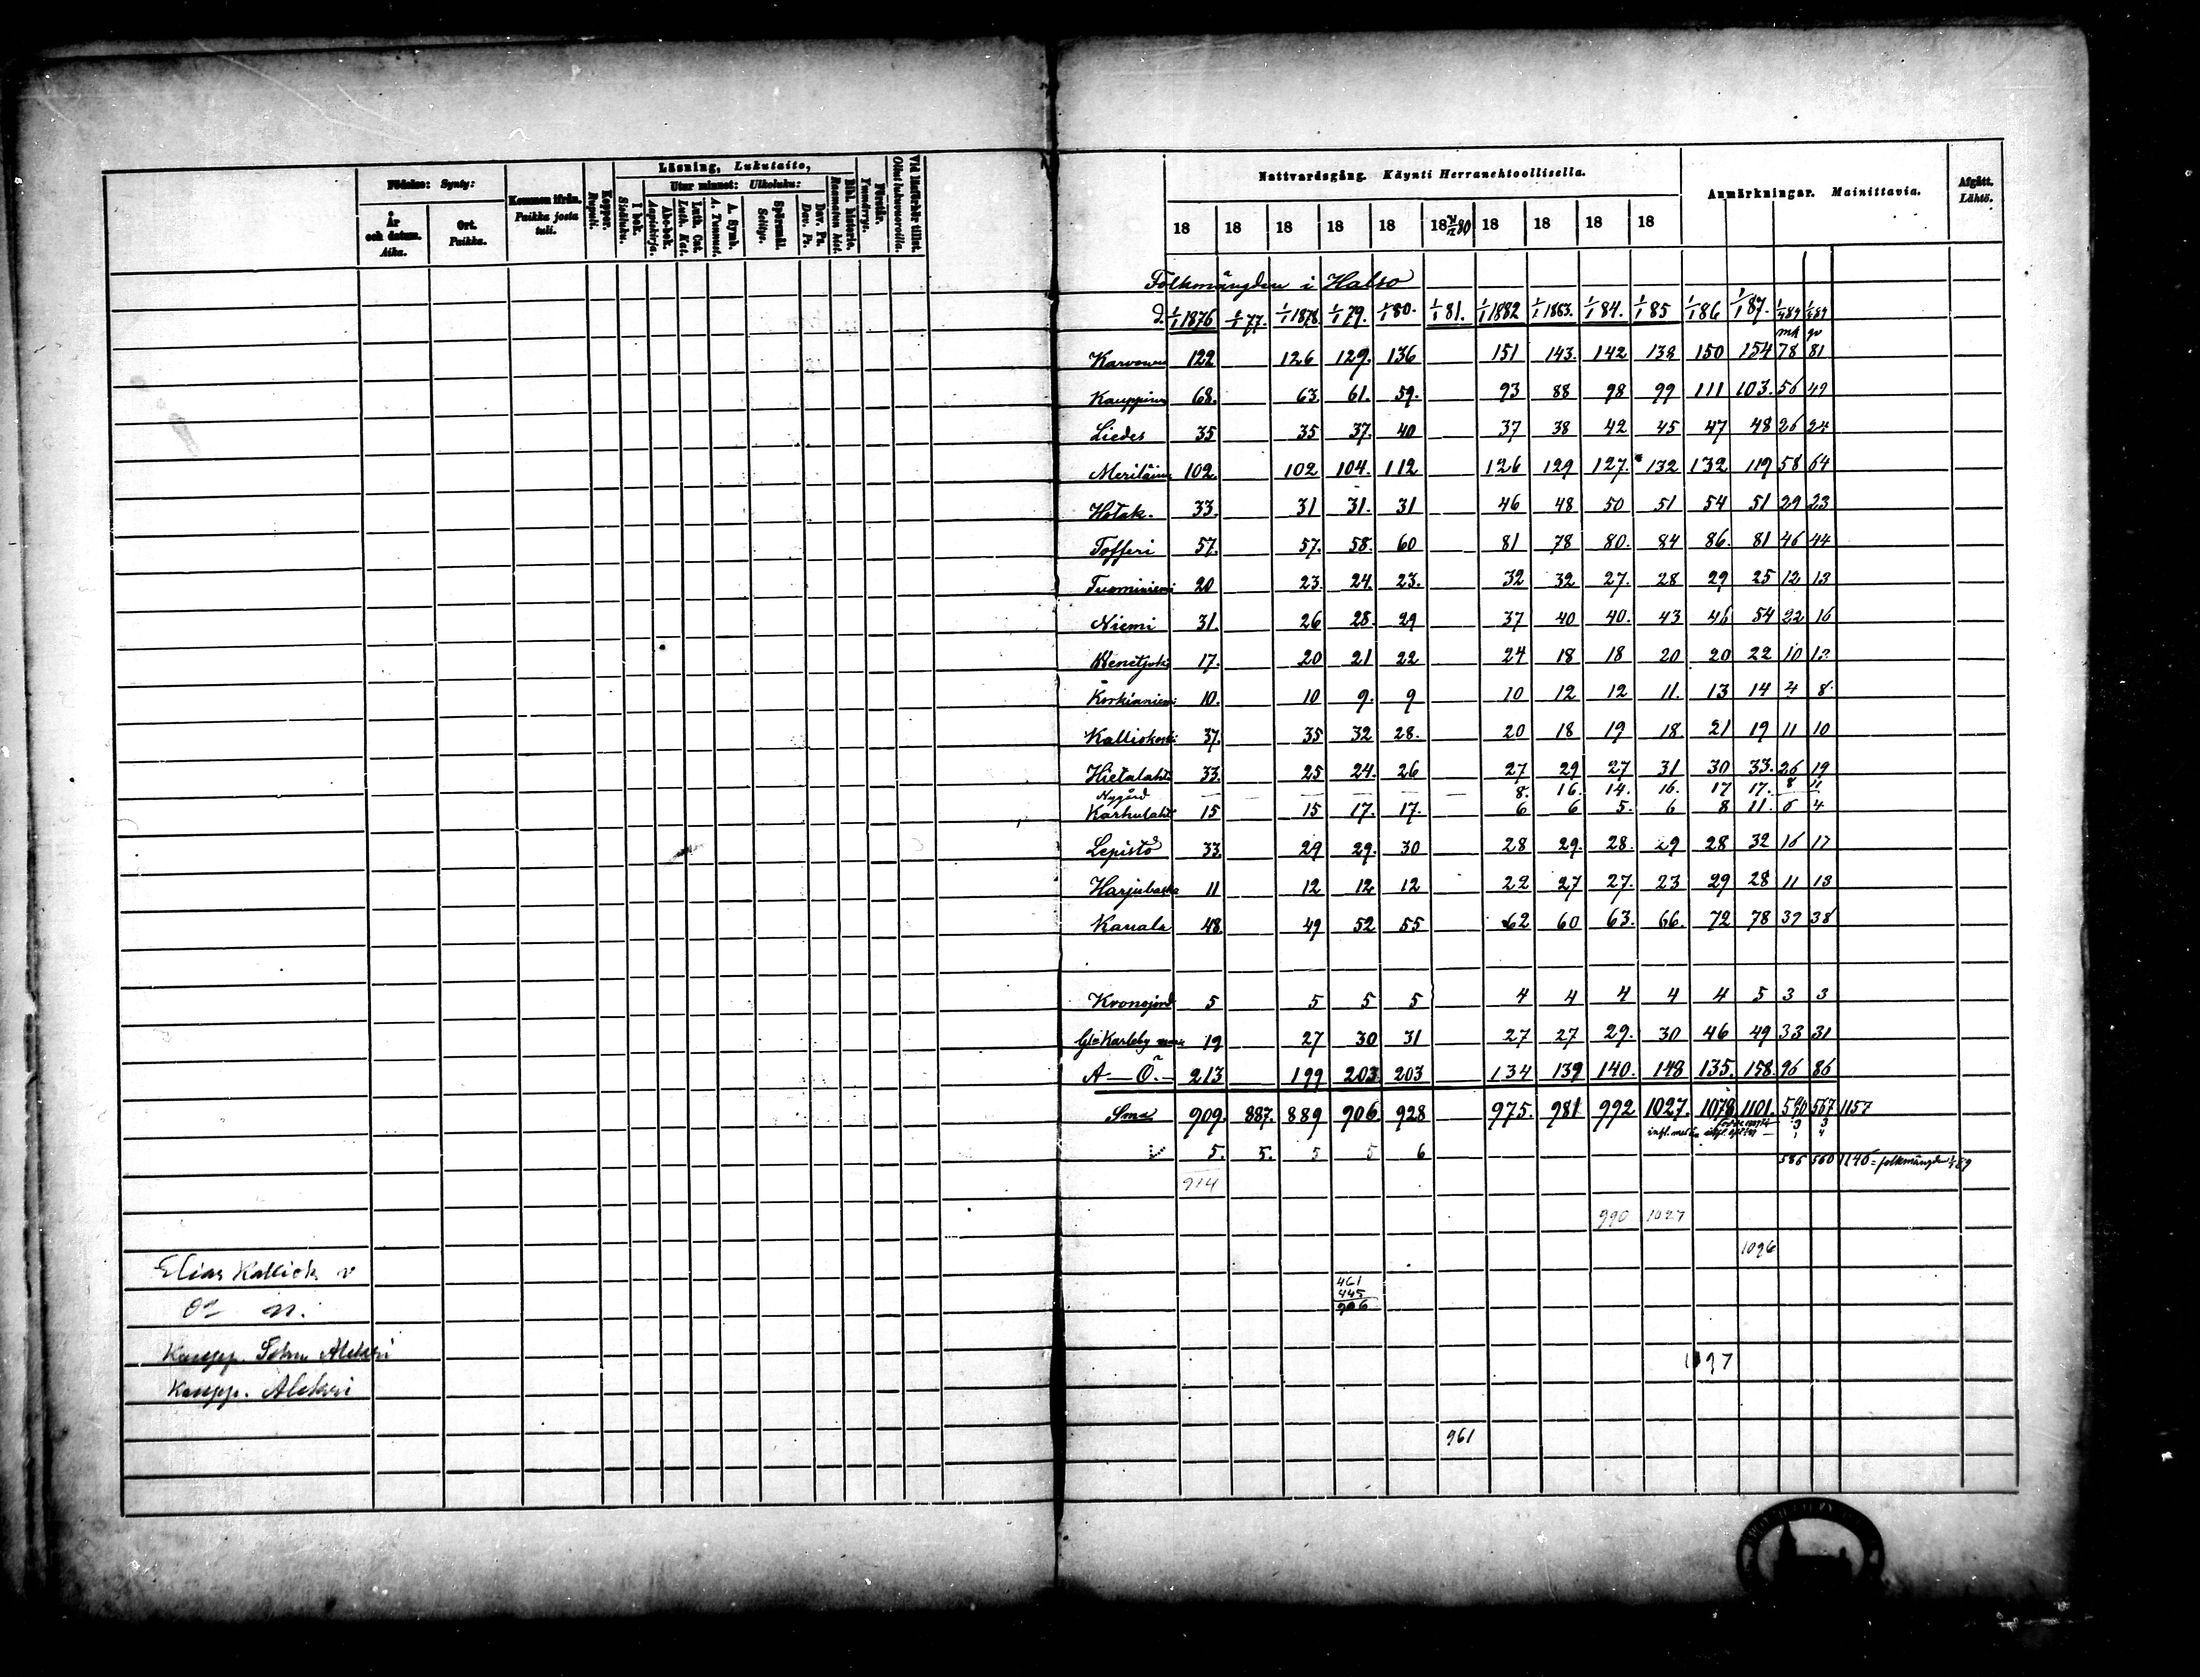 Födelse: Synty:
År och datum. Aika.
Ort. Paikka.
Kommen ifrån. Paikka josta tuli.
Koppor. Rupuli.
Läsning, Lukutaito,
I bok. Sisäluku.
Utur minnet: Ulkoluku:
Abc-bok. Aapiskirja.
Luth. Cat. Luth. Kat.
A. Symb. A. Tunnust.
Spörsmål. Selitys.
Dav. Ps. Dav. Ps.
Bibl. historie. Raamatun hist.
Förstår. Ymmärrys.
Vid läsförhör tillst. Ollut lukuvuoroilla.
Elias Kalliok v
Kaupp. Aleksi
Nattvardsgång. Käynti Herranehtoollisella.
Anmärkningar. Mainittavia.
Afgått. Lähtö.
18 18 18 18 18 18 31/12 80 18 18 18 18
Folkmängden i Halso
d. 1/1 1876 1/1 77. 1/1 1878 1/1 79. 1/1 80. 1/1 81. 1/1 1882 1/1 1883. 1/1 84. 1/1 85 1/1 86 1/1 87. 1/1 89 1/1 89
mk qv
Karvonen 122 126 129. 136 151 143. 142 138 150 154 78 81
Kauppinen 68. 63. 61. 59. 93 88 98 99 111 103. 56 49
Liedes 35 35 37. 40 37 38 42 45 47 48 26 24
Meriläinen 102. 102 104. 112 126 129 127. 132 132 119 58 64
Hotak. 33. 31 31. 31 46 48 50 51 54 51 29 23
Tofferi 57. 57. 58. 60 81 78 80. 84 86. 81 46 44
Tuominiemi 20 23. 24. 23. 32 32 27. 28 29 25 12 13
Niemi 31. 26 28. 29 37 40 40. 43 46 54 22 16
Venetjoki 17. 20 21 22 24 18 18 20 20 22 10 12
Korkianiemi 10. 10 9. 9 10 12 12 11. 13 14 4 8
Kalliokoski 37. 35 32 28. 20 18 19 18. 21 19 11 10
Hietalahti 33. 25 24. 26 27 29 27 31 30 33. 26 19
Nygård 8. 16. 14. 16. 17 17. 8 11
Karhulaht 15 15 17. 17. 6 6 5. 6 8 11. 6 4
Lepistö 33. 29 29. 30 28 29. 28. 29 28 32 16 17
Harjubacka 11 12 12 12 22 27 27. 23 29 28 11 13
Kanala 48. 49 52 55 62 60 63. 66. 72 78 39 38
Kronojord 5 5 5 5 4 4 4 4 4 5 3 3
Gl=Karleby 19 27 30 31 27 27 29. 30 46 49 33 31
A — Ö. — 213 199 203 203 134 139 140. 148 135. 158 96 86
Sma 909. 887. 889 906. 928 975. 981 992 1027. 1078 1101. 590 567 1157
5. 5. 5 5 6
586 560 1146 = folkmängden 1/1 89
914
990 1027
1096
461
445
906
1097
961